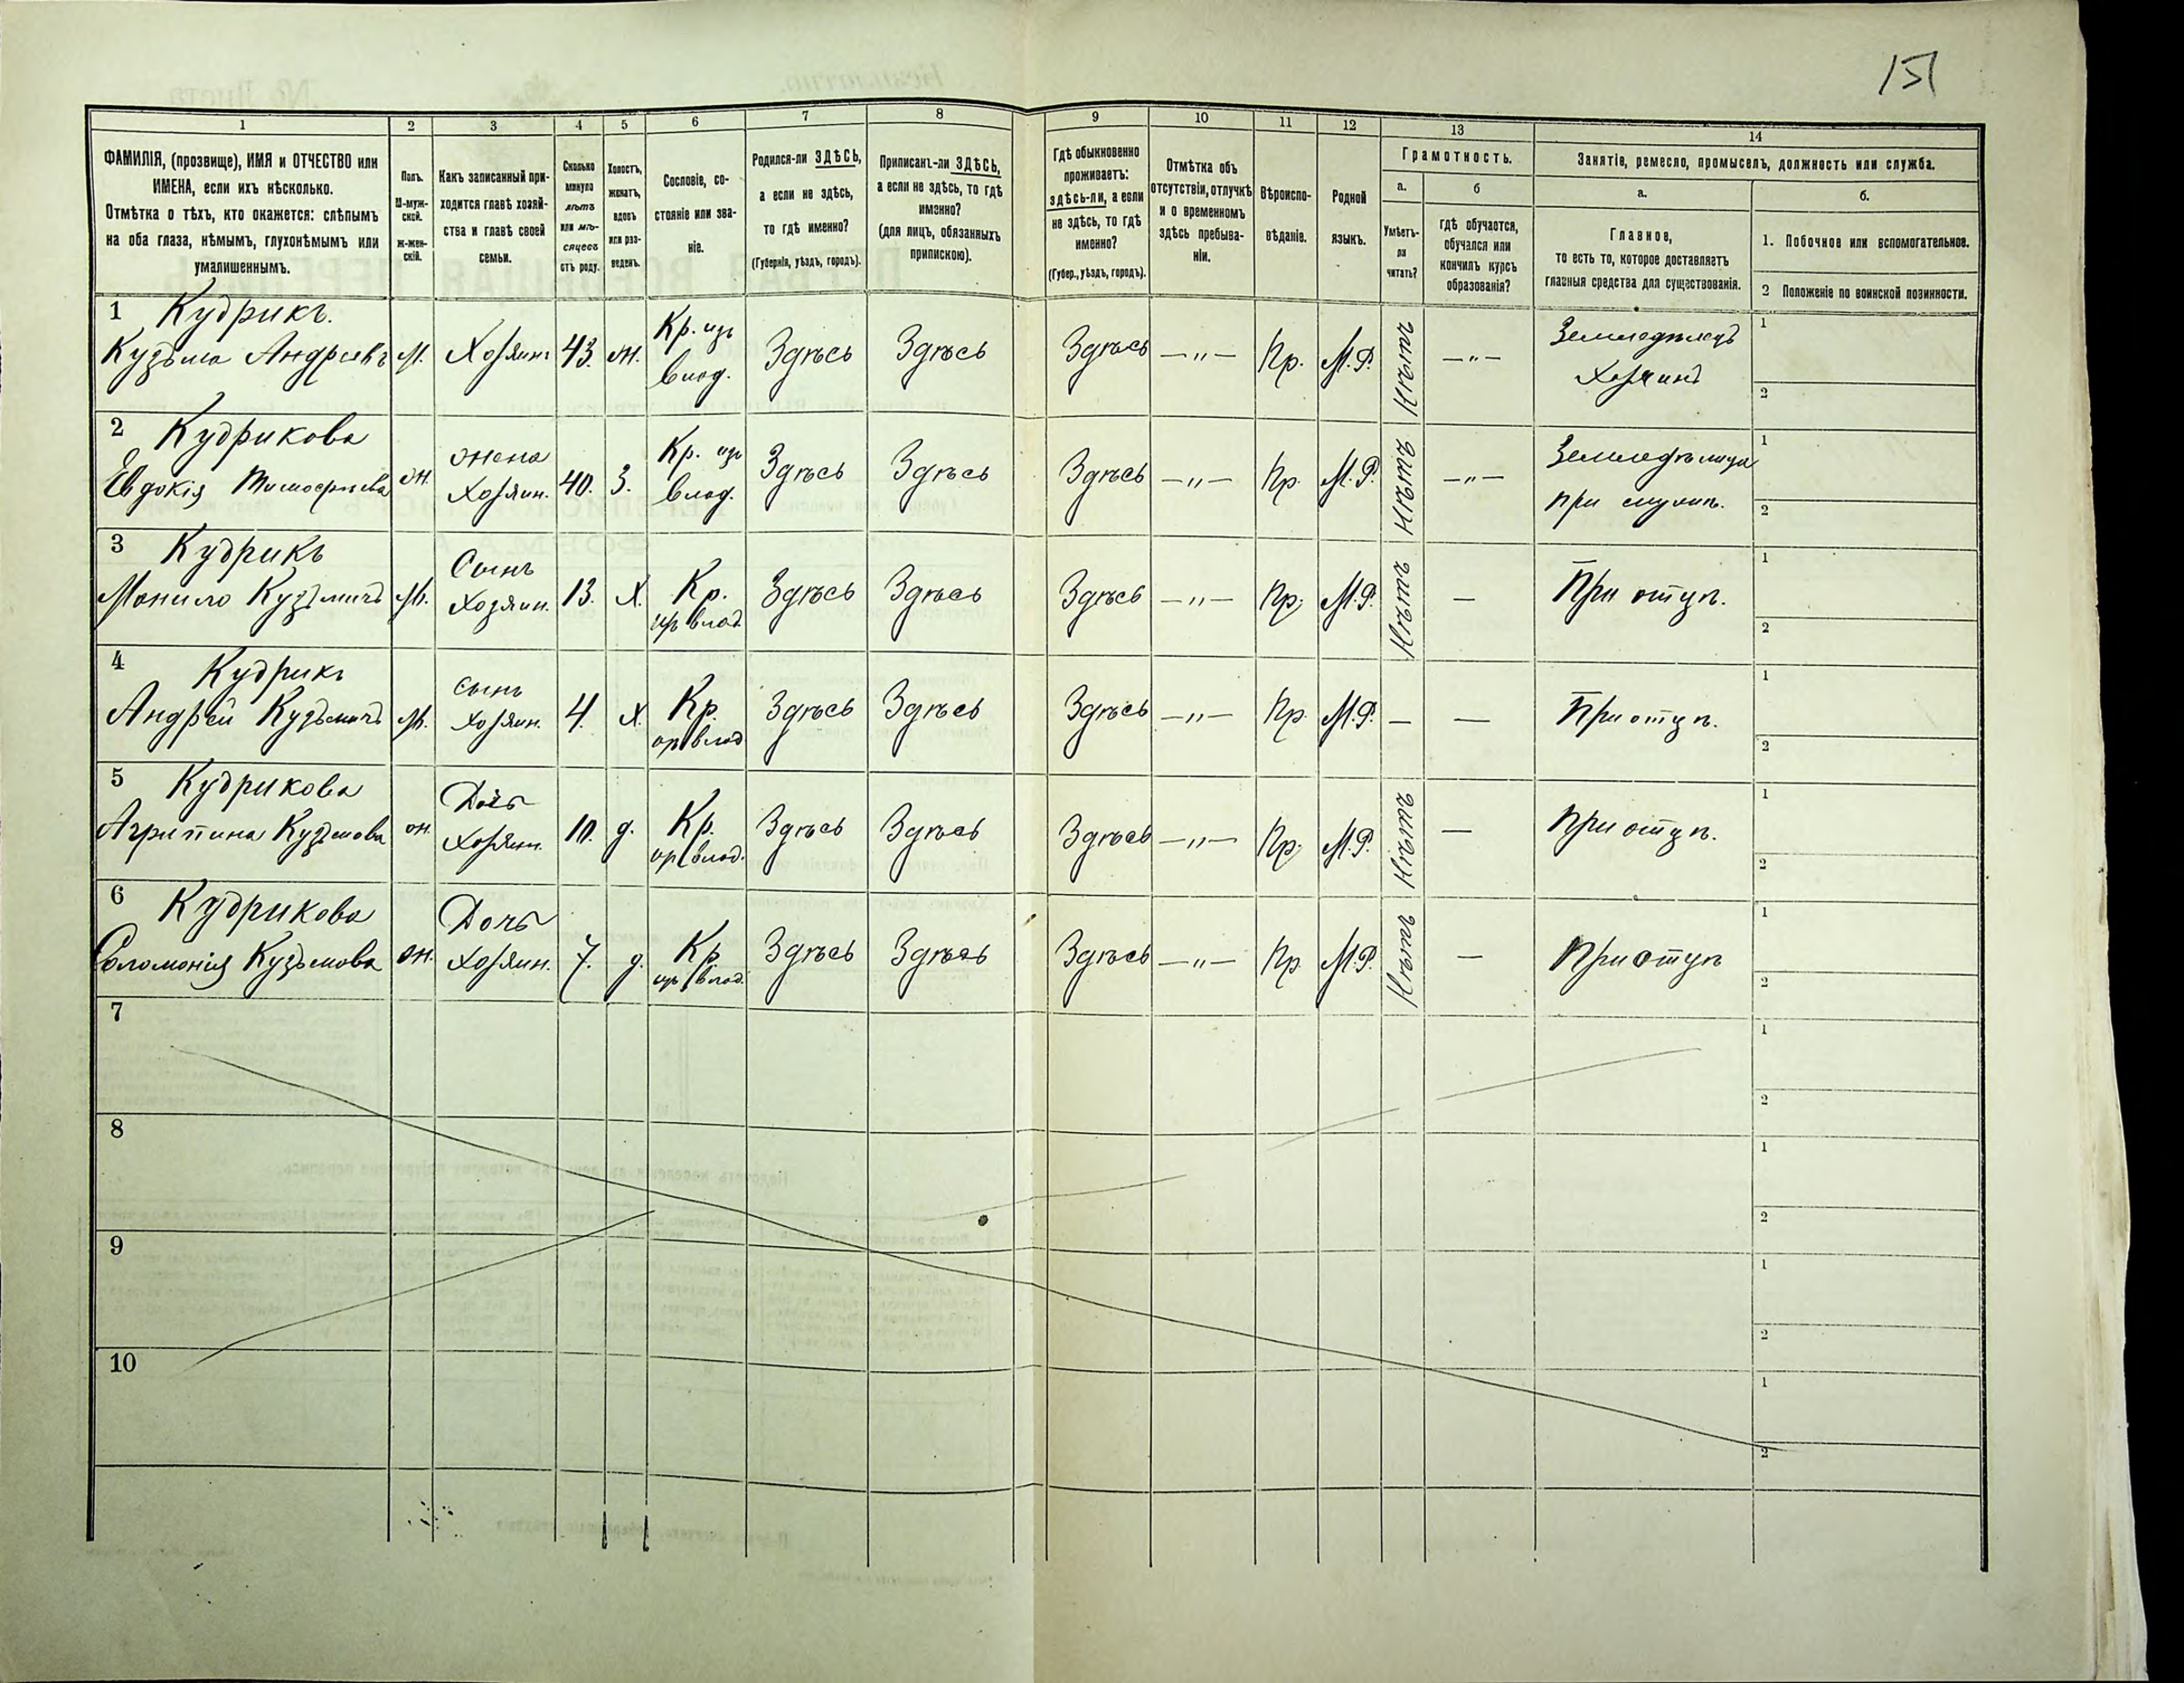 151
1 2 3 4 5 6 7 8 9 10 11 12 13 14
ФАМИЛІЯ, (прозвище), ИМЯ и ОТЧЕСТВО или
ИМЕНА, если ихъ нѣсколько.
Отмѣтка о тѣхъ, кто окажется: слѣпымъ
на оба глаза, нѣмымъ, глухонѣмымъ или
умалишеннымъ.
Полъ.
М-муж-
ской.
ж-жен-
скій.
Какъ записанный при-
ходится главѣ хозяй-
ства и главѣ своей
семьи.
Сколько
минуло
лѣтъ
или мѣ-
сяцевъ
отъ роду.
Холостъ,
женатъ,
вдовъ
или раз-
веденъ.
Сословіе, со-
стояніе или зва-
ніе.
Родился-ли ЗДѢСЬ,
а если не здѣсь,
то гдѣ именно?
(Губернія, уѣздъ, городъ).
Приписанъ-ли ЗДѢСЬ,
а если не здѣсь, то гдѣ
именно?
(для лицъ, обязанныхъ
припискою).
Гдѣ обыкновенно
проживаетъ:
здѣсь-ли, а если
не здѣсь, то гдѣ
именно?
(Губер., уѣздъ, городъ).
Отмѣтка объ
отсутствіи, отлучкѣ
и о временномъ
здѣсь пребыва-
ніи.
Вѣроиспо-
вѣданіе.
Родной
языкъ.
Грамотность.
а.
Умѣетъ-
ли
читать?
б
гдѣ обучается,
обучался или
кончилъ курсъ
образованія?
Занятіе, ремесло, промыселъ, должность или служба.
а.
Главное,
то есть то, которое доставляетъ
главныя средства для существованія.
б.
1. Побочное или вспомогательное.
2 Положеніе по воинской повинности.
1 Кудрикъ. Кр. изъ Земледѣлецъ 1
Кузьма Андреевъ М. Хозяинъ 43. ж. влад. Здѣсь Здѣсь Здѣсь —"— Пр. М.Р. Нѣтъ —"— Хозяинъ 2
2 Кудрикова жена Кр. изъ Земледѣлица 1
Евдокія ж. Хозяин. 40. З. влад. Здѣсь Здѣсь Здѣсь —"— Пр. М.Р. Нѣтъ —"— при 2
3 Кудрикъ Сынъ Кр. 1
Кузьмичъ М. Хозяин. 13. Х. изъ влад Здѣсь Здѣсь Здѣсь —"— Пр. М.Р. Нѣтъ — При отцѣ. 2
4 Кудрикъ сынъ Кр. 1
Андрей Кузьмичъ М. Хозяин. 4. Х. изъ влад Здѣсь Здѣсь Здѣсь —"— Пр. М.Р. — — При отцѣ. 2
5 Кудрикова Дочь Кр. 1
Агрипина Кузьмова ж. Хозяин. 10. д. изъ влад. Здѣсь Здѣсь Здѣсь —"— Пр. М.Р. Нѣтъ — При отцѣ. 2
6 Кудрикова Дочь Кр. 1
Соломонія Кузьмова ж. Хозяин. 7. д. изъ влад. Здѣсь Здѣсь Здѣсь —"— Пр М.Р. Нѣтъ — При отцѣ 2
7 1
2
8 1
2
9 1
2
10 1
2